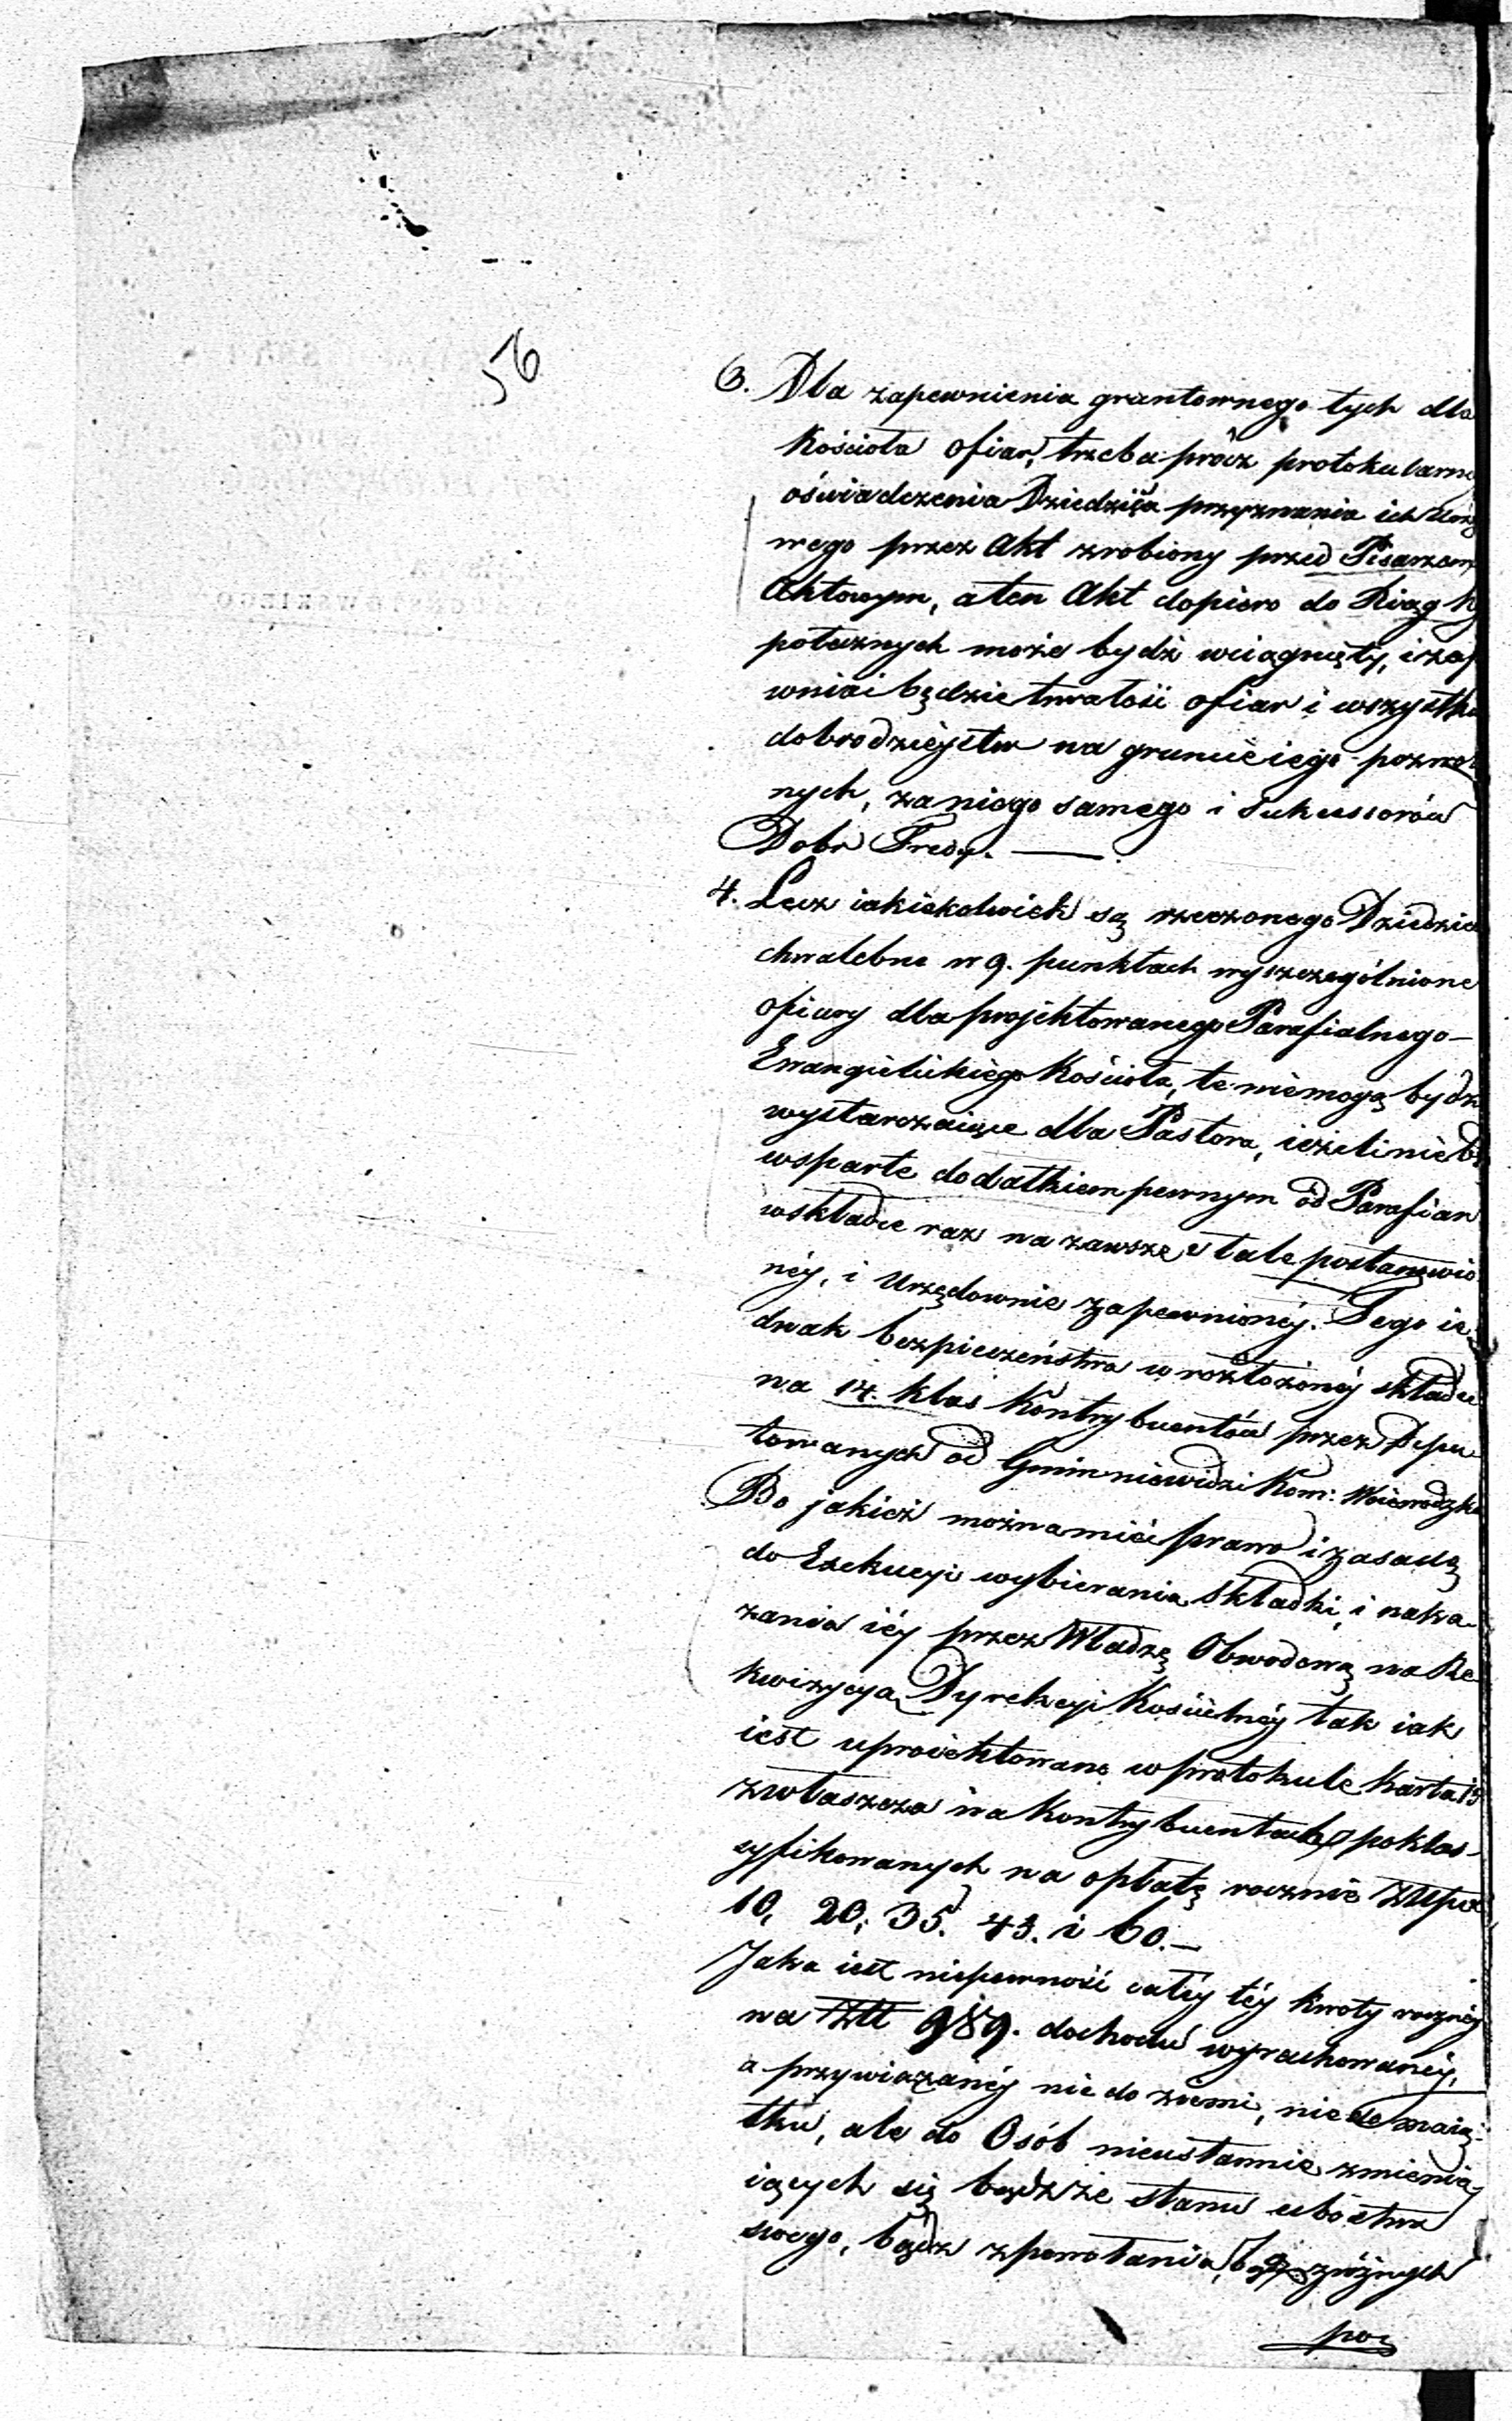 56
3. Dla zapewnienia gruntownego tych dla
Kościoła ofiar, trzeba prócz protokularne
oświadczenia Dziedzica przyznania ich Urzę
wego przez Akt zrobiony przed Pisarzem
Aktowym, a ten Akt dopiero do Xiąg Hy
potecznych może bydź wciągnięty, i zape
wniać będzie trwałość ofiar i wszystkie
dobrodzieystw na gruncie iego
nych, za niego samego i Sukcessorów
Dobr
4. Lecz iakiekolwiek są rzeczonego Dziedzica
chwalebne w 9. punktach wyszczególnione
ofiary dla projektowanego Parafialnego
Ewangielickiego Kościoła, te niemogą bydź
wystarczaiące dla Pastora, ieżeli nie bę
wsparte dodatkiem pewnym od Parafian
w składce raz na zawsze stale postanowio
néy, i Urzędownie zapewnionéy. Tego ie
dnak bezpieczeństwa w rozłożonéy składce
na 14. klas Kontrybuentów przez Depu
towanych od Gmin niewidzi Kom: Woiewodzka
Bo jakież można mieć prawo i zasadę
do Exekucyi wybierania składki, i naka
zania iéy przez Władzę Obwodową na Re
kwizycyą Dyrekcyi Kościelnéy tak iak
iest uproiektowane w protokule Karta 15
zwłaszcza na Kontrybuentach poklas
syfikowanych na opłatę rocznie
10, 20, 35. 43. i 60.—
Jaka iest niepewność całéy téy kwoty rocznéy
na Złt 989. dochodu wyrachowanéy,
a przywiązanéy nie do ziemi, nie do maią
tku, ale do Osób nieustannie zmienia
iących się bądź ze stanu ubóstwa
swego, bądź z powołania, bądź z różnych